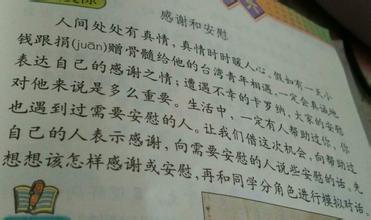 感谢和安慰
人间处处有真情，真情时时暖人心，假如有一天小
钱跟捐(juān)赠骨髓给他的台湾青年相遇，一定会真诚地
表达自己的感谢之情；遭遇不幸的卡罗纳，大家的安慰
对他来说是多么重要。生活中，一定有人帮助过你，你
也遇到过需要安慰的人。让我们借这次机会，向帮助过
自己的人表示感谢，向需要安慰的人说些安慰的话。先
想想该怎样感谢或安慰，再和同学分角色进行模拟对话。